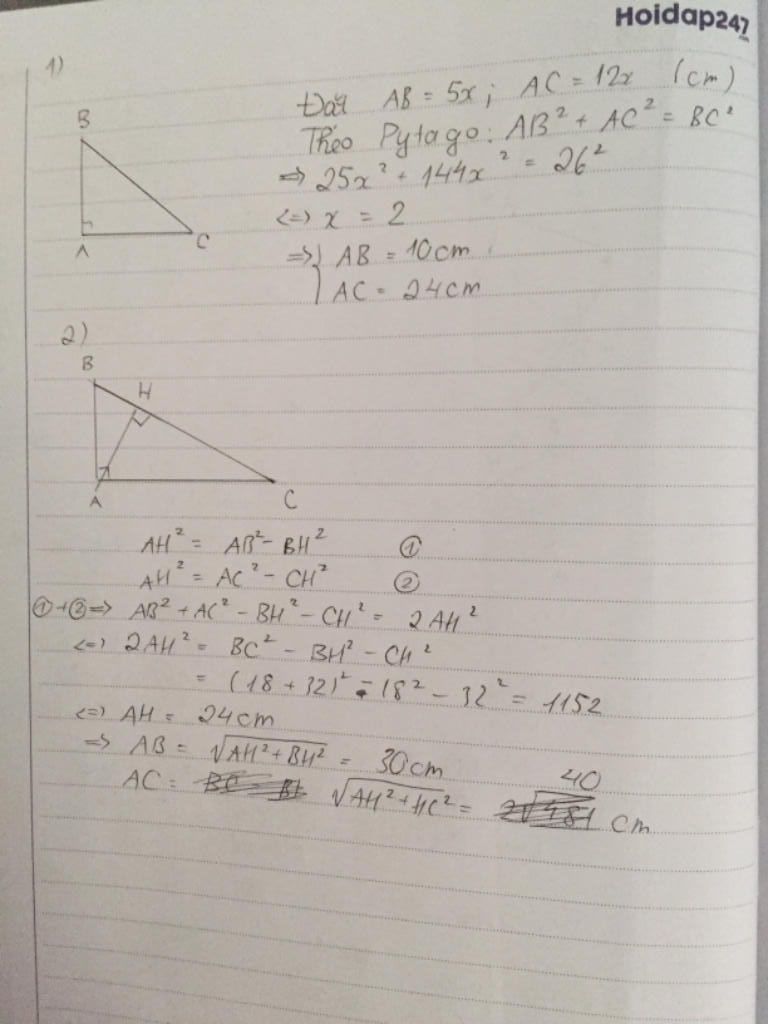 Hoidap247
1)
B
A
C
Đặt AB = 5x ; AC = 12x (cm)
Theo Pytago: AB² + AC² = BC²
=> 25x² + 144x² = 26²
<=> x = 2
=> { AB = 10cm
AC = 24cm
2)
B
H
A
C
AH² = AB² - BH² ①
AH² = AC² - CH² ②
① + ② => AB² + AC² - BH² - CH² = 2AH²
<=> 2AH² = BC² - BH² - CH²
= (18 + 32)² - 18² - 32² = 1152
<=> AH = 24cm
=> AB = √(AH² + BH²) = 30cm
AC = √(AH² + HC²) = 40 cm